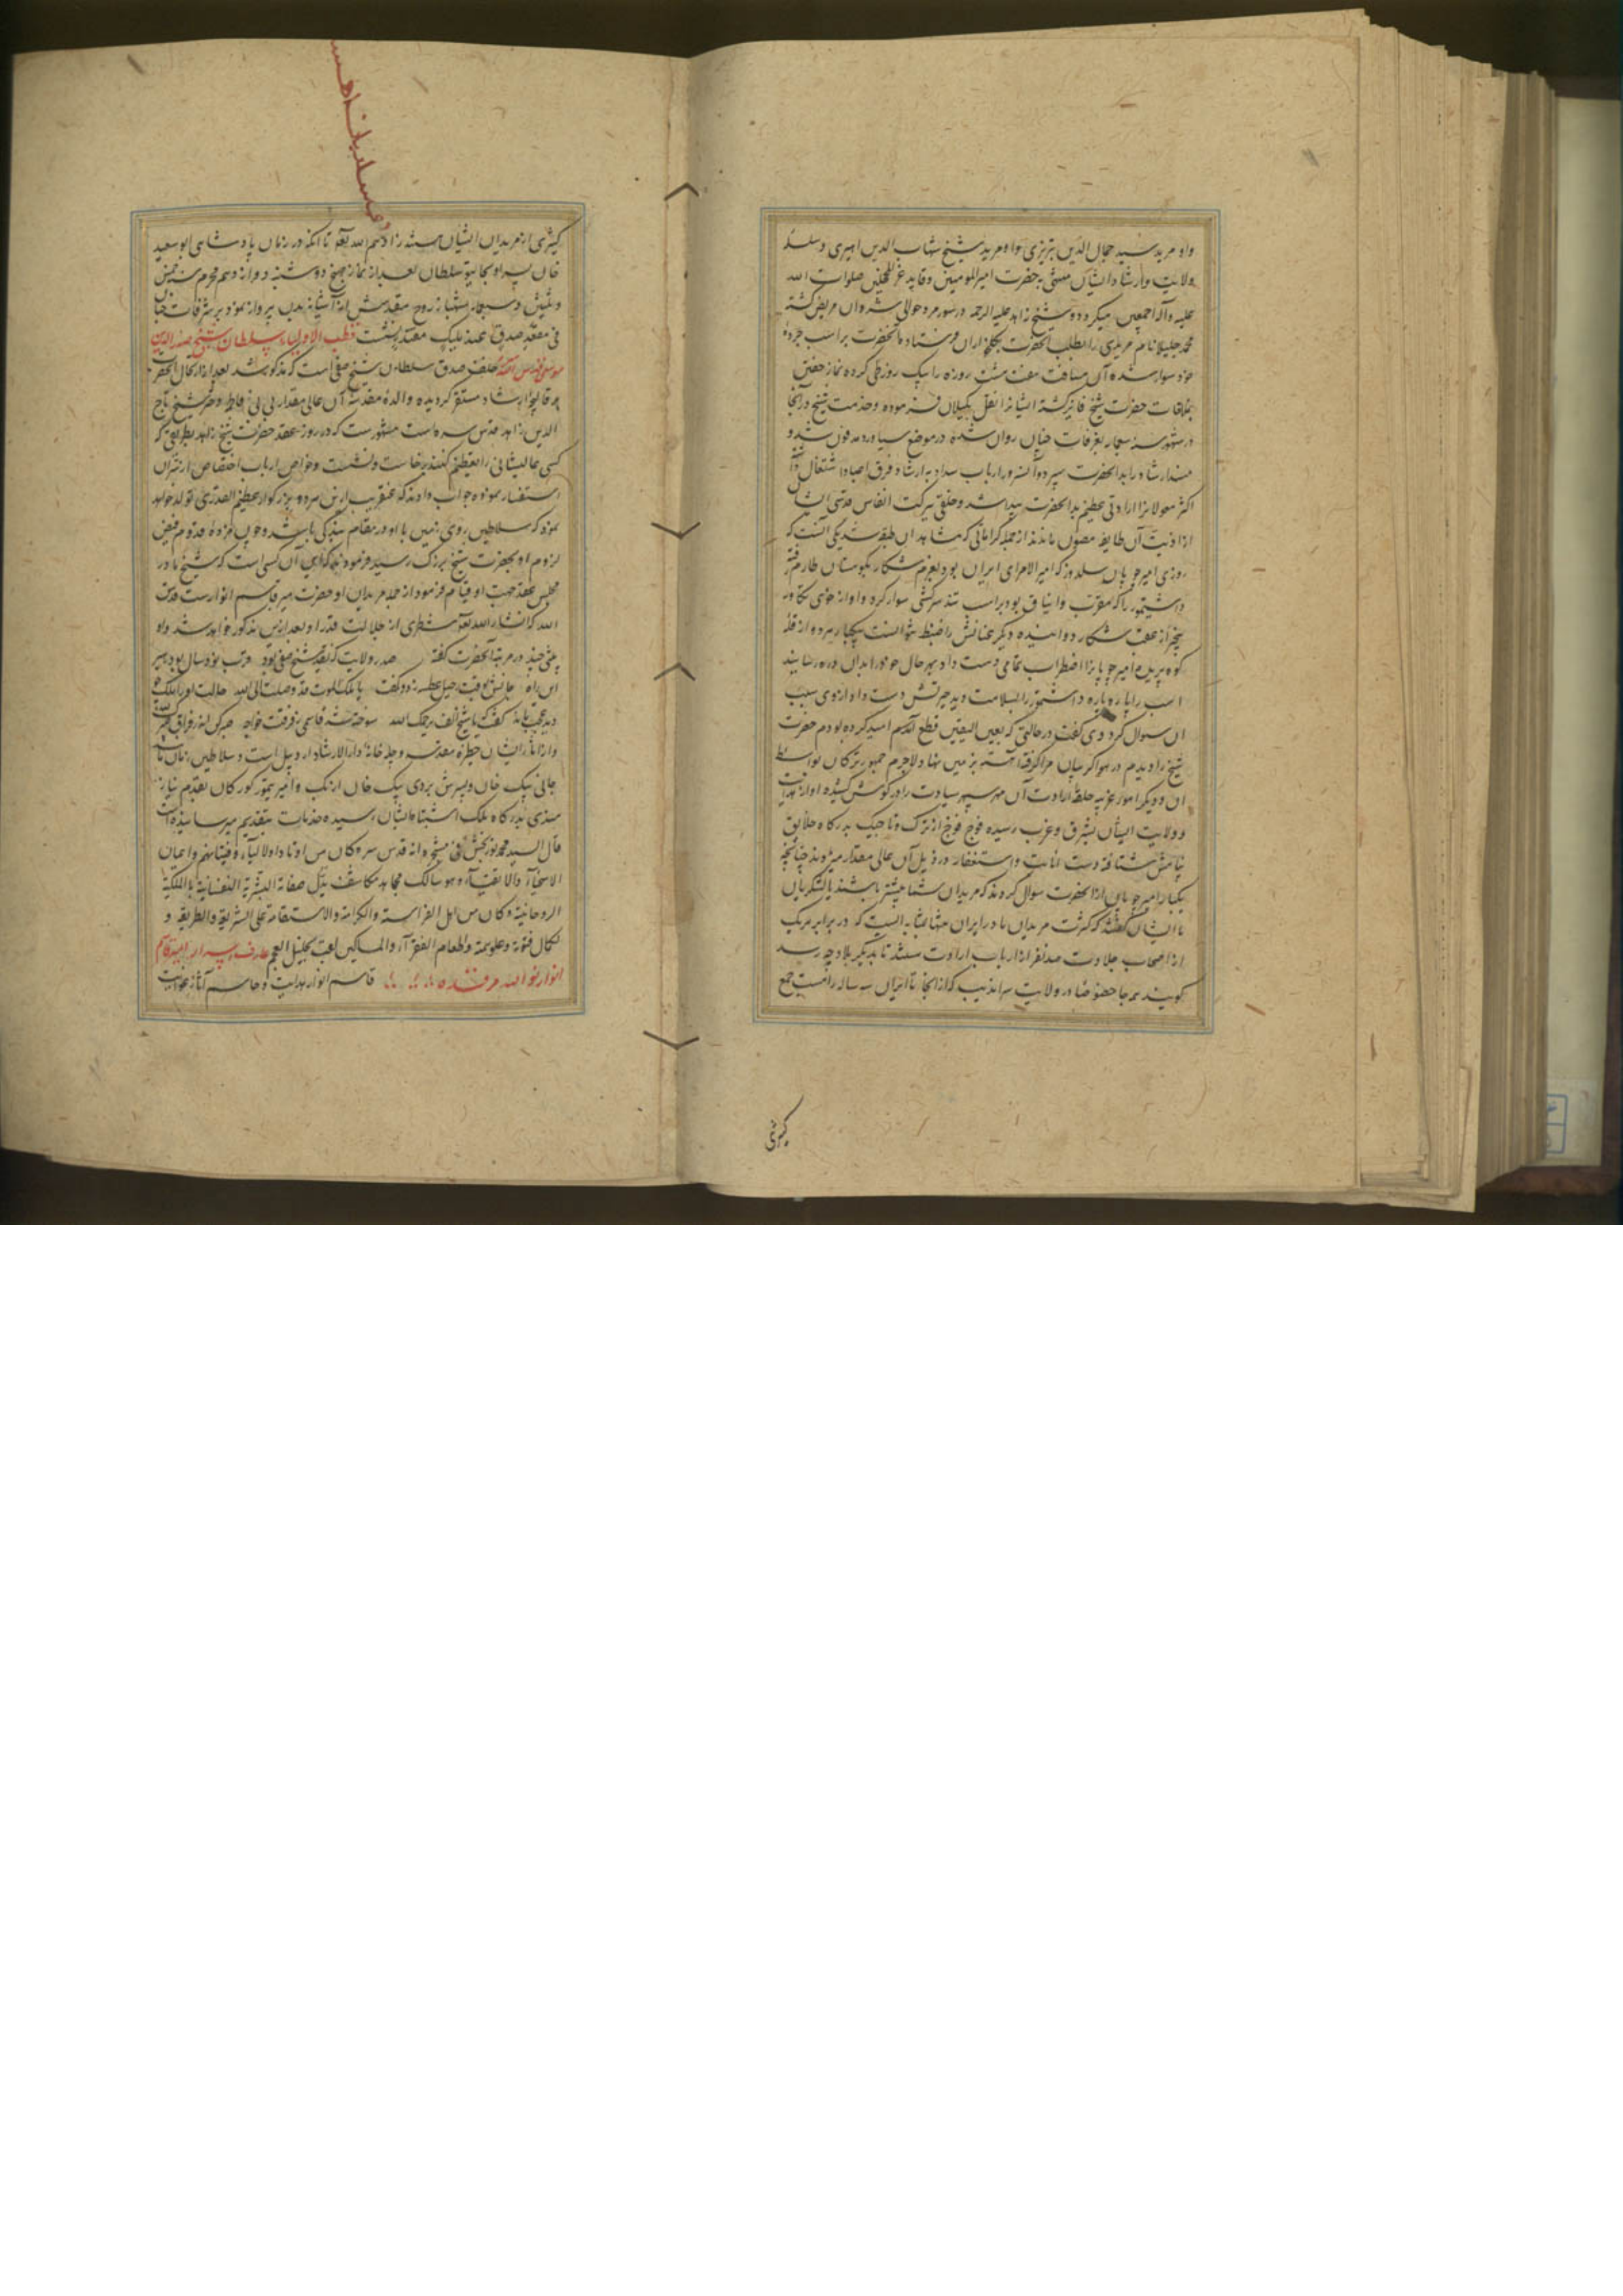 واو مرید سید جمال الدین تبریزی و او مرید شیخ شهاب الدین اهری و سلسلهٔ
ولایت و ارشاد ایشان منتهی بحضرت امیرالمومنین و قاید غر المحجلین صلوات الله
علیه وآله اجمعین میگردد و شیخ زاهد علیه الرحمه در سورمرد حوالی شروان مریض گشته
محمد خلیلانام مریدی را بطلب آنحضرت بکلخواران فرستاد و آنحضرت بر اسب جردهٔ
خود سوار شده آن مسافت هفت هشت روزه را بیک روز طی کرده نماز خفتن
بملاقات حضرت شیخ فایز گشته ایشانرا نقل بگیلان فرموده و حضرت شیخ در آنجا
در شهور سنه سبعمایه بغرفات جنان روان شده در موضع سیاورود مدفون شد و
مسند ارشاد را بدانحضرت سپرد و آنسرور ارباب سداد بارشاد فرق عباد اشتغال داشته
اکثر مغولانرا ارادتی عظیم بدانحضرت پیدا شد و خلقی ببرکت انفاس قدسی ایشان
از اذیت آن طایفه مصون ماندند از جمله کراماتی که مشاهد آن طبقه شد یکی آنست که
روزی امیر چوپان سلدوز که امیرالامرای ایران بود بعزم شکار بکوهستان طارم رفته
داشتیمور را که مقرب و ایناق بود بر اسب تند سرکشی سوار کرده و او از هوی تکاور
نخجیر از عقب شکار دوانیده دیگر عنانش را ضبط نتوانست بیکبار مرد و از قلهٔ
کوه پرید و امیر چوپانرا اضطراب تمامی دست داد بهر حال خود را بدان دره رسانیدند
اسب را پاره پاره و داشتیمور را بسلامت دید حیرتش دست داد از وی سبب
آن سوال کرد وی گفت در حالتی که بعین الیقین قطع امید کرده بودم حضرت
شیخ را دیدم در هوا گریبان مرا گرفته آهسته بزمین نهاد و لاجرم جمهور ترکان بواسطهٔ
آن و دیگر امور غریبه حلقهٔ ارادت آن مهر سپهر سیادت را در گوش کشیده آوازهٔ هدایت
و ولایت ایشان بشرق و غرب رسیده فوج فوج از ترک و تاجیک بدرگاه خلایق
پناهش شتافته دست انابت و استغفار در ذیل آن عالی مقدار میزدند چنانچه
یکبار امیر چوپان از آنحضرت سوال کردند که مریدان شما بیشتر باشند یا لشکریان
ما ایشان گفتند که کثرت مریدان ما در ایران بمثابه ایست که در برابر هر یک
از اصحاب جلادت صد نفر از ارباب ارادت هستند تا بدیگر بلاد چه رسد
گویند هر جا خصوصا در ولایت سراندیب که از آنجا تا ایران سه ساله راهست جمع
کثیری
کثیری از مریدان ایشان هستند زادهم الله تعالی تا آنکه در زمان پادشاهی ابوسعید
خان پسر اولجایتو سلطان بعد از نماز صبح دوشنبه دوازدهم محرم سنه خمس
و ثلثین و سبعمایه شهباز روح مقدسش از آشیانه بدن پرواز نمود و بر شرفات جنان
فی مقعد صدق عند ملیک مقتدر بنشست قطب الاولیاء سلطان شیخ صدرالدین
موسی قدس الله سره خلف صدق سلطان شیخ صفی است که مذکور شد بعد از ارتحال آنحضرت
بر قالیچهٔ ارشاد مستقر گردیده والدهٔ مقدسهٔ آن عالی مقدار بی بی فاطمه دختر شیخ تاج
الدین زاهد قدس سره است مشهورست که در روز عقد حضرت شیخ زاهد بطریقی که
کسی عالیشانی را تعظیم کنند برخاست و نشست و خواص ارباب اختصاص از سر آن
استفسار نموده جواب دادند که عنقریب از این سرور بزرگوار عظیم القدری تولد خواهد
نمود که سلاطین روی زمین با او در مقام بندگی باشند و چون مژدهٔ قدوم فیض
لزوم او بحضرت شیخ بزرگ رسید فرمودند که این آن کسی است که شیخ ما در
مجلس عقد جهت او قیام فرمود از جمله مریدان او حضرت میر قاسم انوارست قدس
الله که انشاءالله تعالی شطری از جلالت قدر او بعد ازین مذکور خواهد شد و او
بیتی چند در مرثیهٔ آنحضرت گفته صدر ولایت که نقد شیخ صفی بود قرب نود سال بود رهبر
این راه جانش بوقت رحیل عطسه زد و گفت یا ملک الموت قد وصلت الی الله حالت او را ملک چو
دید عجب ماند گفت که یا شیخ الف یرحمک الله سوخته شد قاسمی ز فرقت خواجه صبر کن اندر فراق
و از آثار ایشان حظیره مقدسه و چله خانهٔ دارالارشاد اردبیل است و سلاطین زمان تا
جانی بیک خان و پسرش بردی بیک خان ازبک و امیر تیمور کورکان بقدم نیاز
مندی بدرگاه ملک اشتباه ایشان رسیده خدمات بتقدیم میرسانیده اند
قال السید محمد نوربخش فی مشجره انه قدس سره کان من اوتاد اولیاء و فتیانهم و اعیان
الاسخیاء والاتقیاء و هو سالک مجاهد مکاشف بدل صفاته البشریة النفسانیة بالملکیة
الروحانیة و کان من اهل الفراسة والکرامة والاستقامة علی الشریعة والطریقة و
لکمال فتوته و علو همته و اطعام الفقراء والمساکین لقب بخلیل العجم عارف اسرار امیر قاسم
انوار نور الله مرقده قاسم انوار هدایت و حاسم آثار غوایت